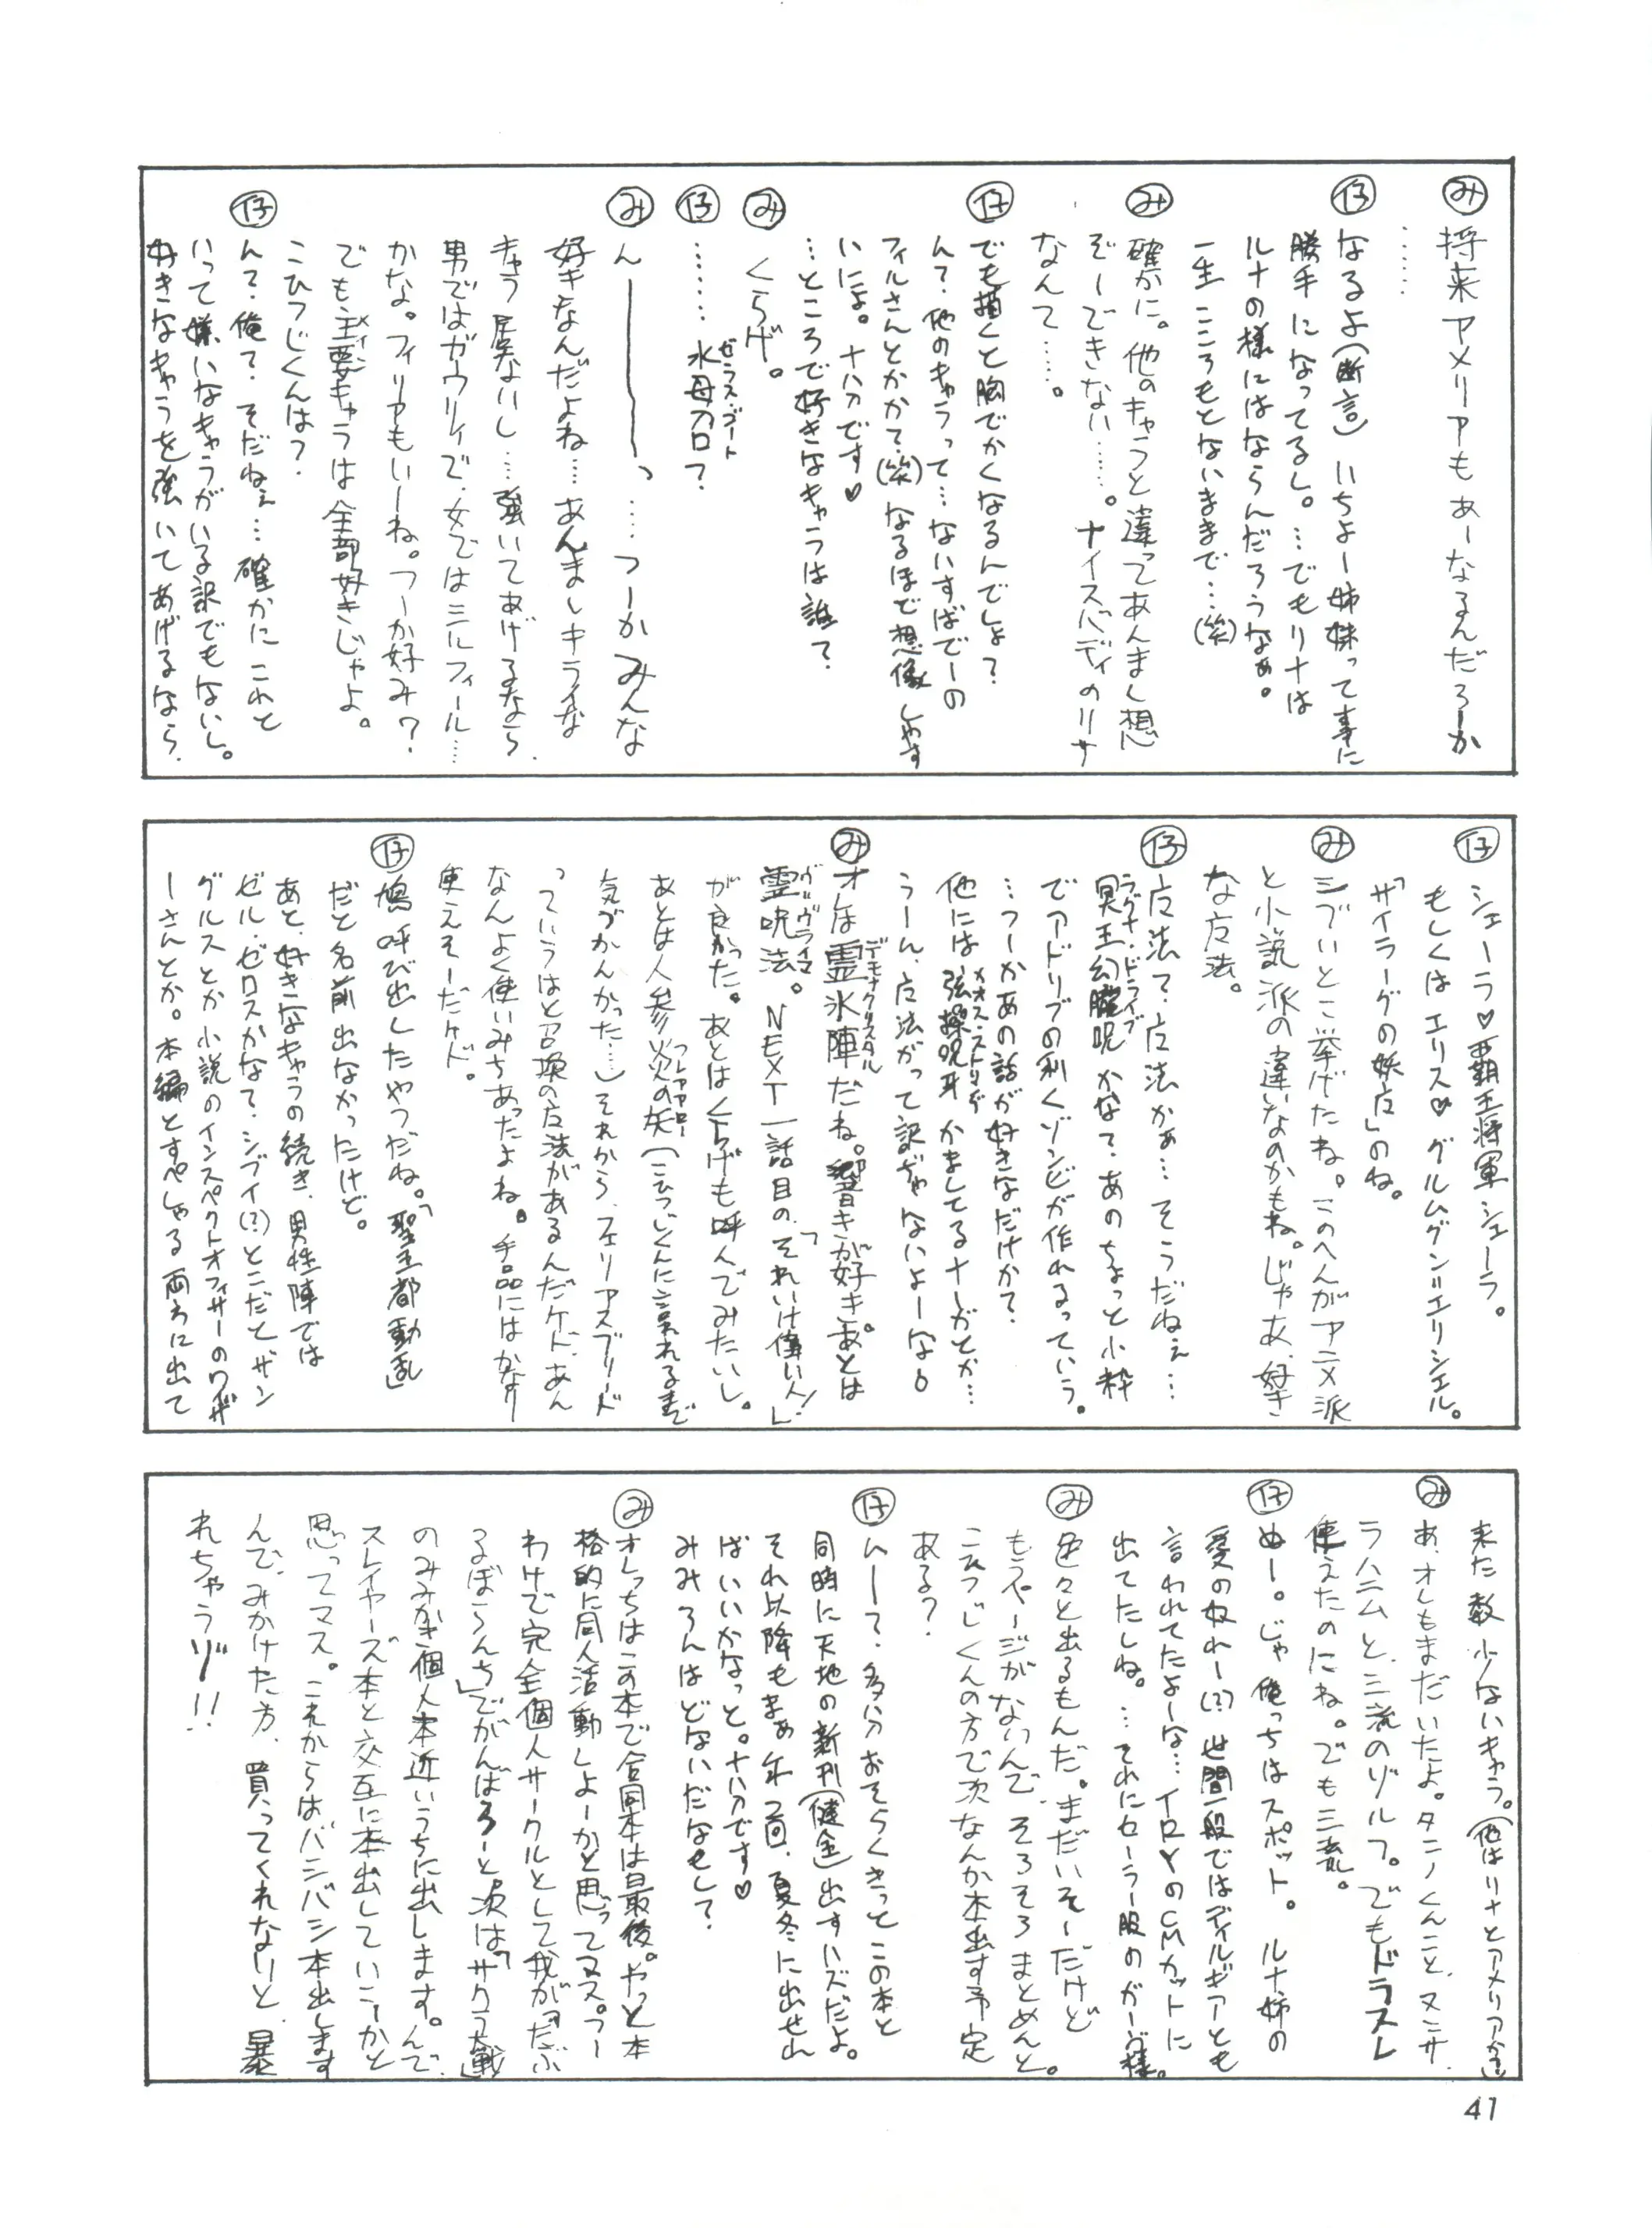 み 将来アメリアもあーなるんだろーか
……
仔 なるよ(断言) いちよー姉妹って事に
勝手になってるし。…でもリナは
ルナの様にはならんだろうなぁ。
一生こころもとないままで…(笑)
み 確かに。他のキャラと違ってあんまし想
ぞーできない……。ナイスバディのリナ
なんて……。
仔 でも描くと胸でかくなるんでしょ?
んて、他のキャラって…ないすばでーの
フィルさんとかかて(笑)なるほど想像しやす
いによ。十八分です♥
…ところで好きなキャラは誰?
み くらげ。
仔 ……水母刀口?
ゼラス・ゴート
み ん———っ……つーかみんな
好きなんだよね……あんましキライな
キャラ居ないし……強いてあげるなら、
男ではガウリィで、女ではミルフィール……
かな。フィリアもいーね。つーか好み?
でも主要キャラは全部好きじゃよ。
メイン
こひつじくんは?
仔 んて、俺て、そだねぇ…確かにこれと
いって嫌いなキャラがいる訳でもないし。
好きなキャラを強いてあげるなら、
仔 シェーラ♥覇王将軍シェーラ。
もしくはエリス♥グルムグン=エリシエル。
「サイラーグの妖魔」のね。
み シブいとこ挙げたね。このへんがアニメ派
と小説派の違いなのかもね。じゃあ、好き
な魔法。
仔 魔法て、魔法かぁ…そうだねぇ…
冥王幻朧呪かなて、あのちょっと小粋
ラグナ・ドライブ
でアドリブの利くゾンビが作れるっていう。
…つーかあの話が好きなだけか?
他には弦操呪牙かましてるナーガとか…
カオス・ストリング
うーん、魔法がって訳ぢゃないよーな。
み オレは霊氷陣だね。響きが好き。あとは
デモナクリスタル
霊呪法。NEXT一話目の、「それいけ偉い人!」
ヴ=ヴライマ
が良かった。あとはくらげも呼んでみたいし。
あとは人参炎の矢(こひつじくんに言われるまで
フレアアロー
気づかんかった…)それから、フェリアスブリード
っていうはと召喚の魔法があるんだケド、あん
なんよく使いみちあったよね。手品にはかなり
使えそーだケド。
仔 鳩呼び出したやつだね。「聖王都動乱」
だと名前出なかったけど。
あと、好きなキャラの続き、男性陣では
ゼル・ゼロスかなて、シブイ(?)とこだとザン
グルスとか小説のインスペクトオフィサーのワイザ
ーさんとか。本編とすぺしゃる両方に出て
来た数少ないキャラ。(他はリナとアメリアか)
み あ、オレもまだいたよ。タニノくんこと、ヌンサ、
ラハニムと、三流のゾルフ。でもドラスレ
使えたのにね。でも三流。
仔 ぬー。じゃ俺っちはスポット。ルナ姉の
愛のねわー(?)世間一般ではディルギアとも
言われてたよーな…イロんのCMカットに
出てたしね。…それにセーラー服のガーヴ様。
み 色々と出るもんだ。まだいそーだけど
もうページがないんで、そろそろまとめんと。
こひつじくんの方で次なんか本出す予定
ある?
仔 んーて、多分おそらくきっとこの本と
同時に天地の新刊(健全)出すハズだよ。
それ以降もまぁ年2回、夏冬に出せれ
ばいいかなっと。十八分です♥
みみろんはどないだなもして?
み オレっちはこの本で合同本は最後。やっと本
格的に同人活動しよーかと思ってマス。つー
わけで完全個人サークルとして我が「だぶ
るぼらんち」でがんばろーと次は「サクラ大戦」
のみみかき個人本近いうちに出します。んで、
スレイヤーズ本と交互に本出していこーかと
思ってマス。これからはバシバシ本出します
んで、みかけた方、買ってくれないと、暴
れちゃうゾ!!
41